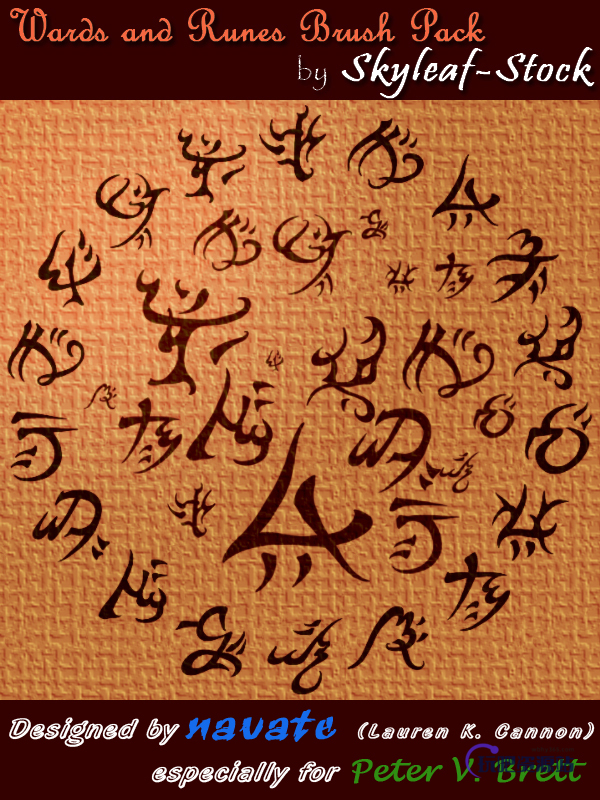 Wards and Runes Brush Pack
by Skyleaf-Stock
Designed by navate (Lauren K. Cannon)
especially for Peter V. Brett